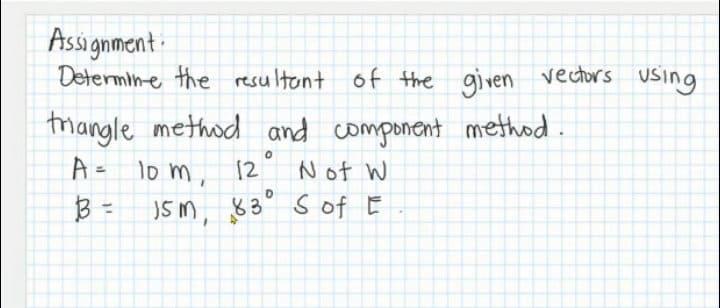 Assignment:
Determine the resultant of the given vectors using
triangle method and component method.
A = 10 m, 12° N of W
B = 15 m, 83° S of E.